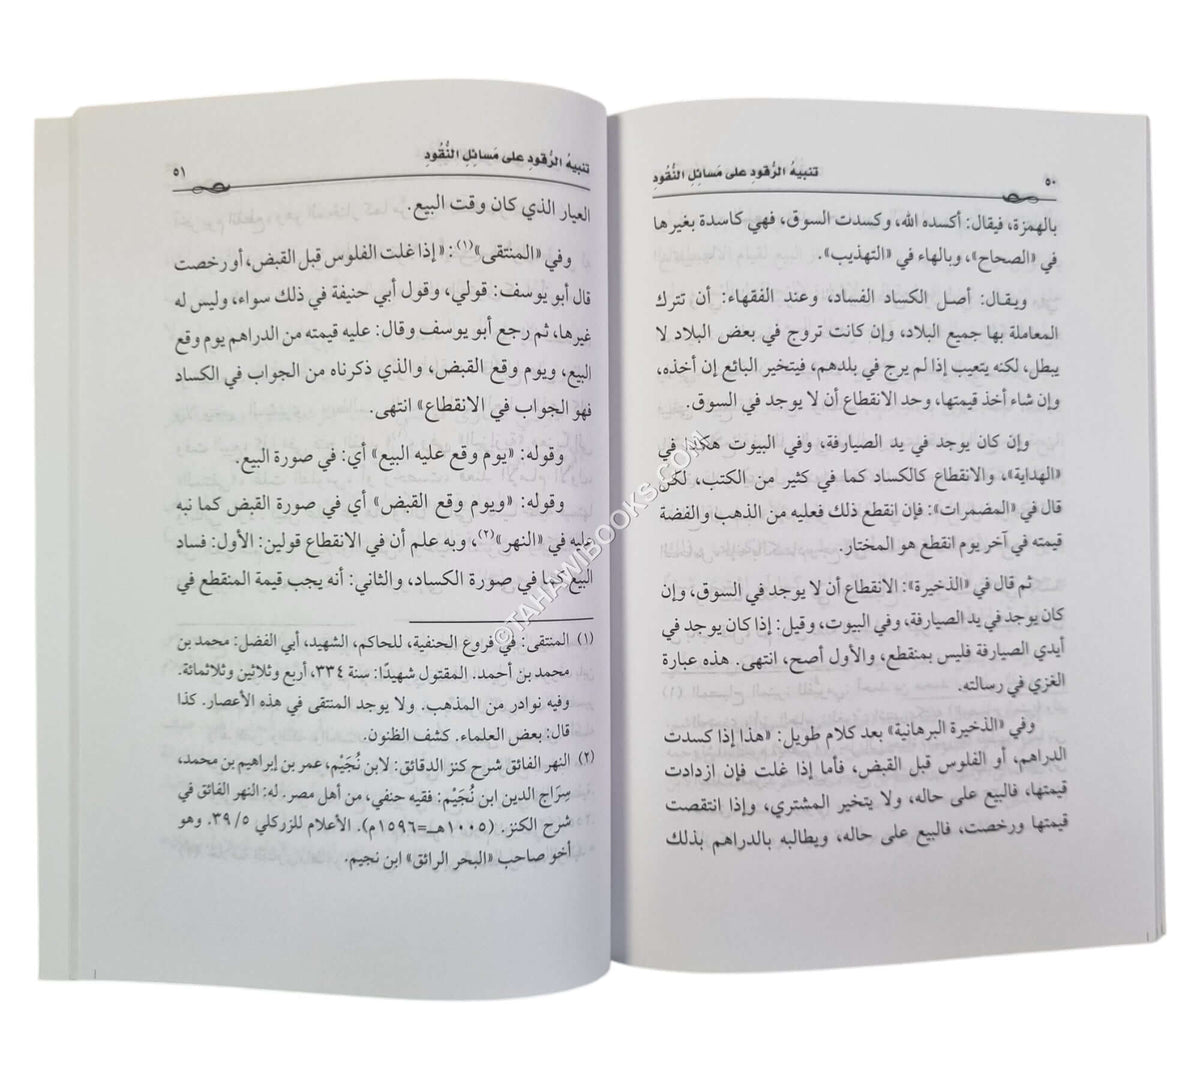 تنبيهُ الرُّقودِ على مَسائِلِ النُّقُودِ
٥٠
بالهمزة، فيقال: أكسده الله، وكسدت السوق، فهي كاسدة بغيرها
في «الصحاح»، وبالهاء في «التهذيب».
ويقال: أصل الكساد الفساد، وعند الفقهاء: أن تترك
المعاملة بها جميع البلاد، وإن كانت تروج في بعض البلاد لا
يبطل، لكنه يتعيب إذا لم يرج في بلدهم، فيتخير البائع إن أخذه،
وإن شاء أخذ قيمتها، وحد الانقطاع أن لا يوجد في السوق.
وإن كان يوجد في يد الصيارفة، وفي البيوت هكذا في
«الهداية»، والانقطاع كالكساد كما في كثير من الكتب، لكن
قال في «المضمرات»: فإن انقطع ذلك فعليه من الذهب والفضة
قيمته في آخر يوم انقطع هو المختار.
ثم قال في «الذخيرة»: الانقطاع أن لا يوجد في السوق، وإن
كان يوجد في يد الصيارفة، وفي البيوت، وقيل: إذا كان يوجد في
أيدي الصيارفة فليس بمنقطع، والأول أصح، انتهى. هذه عبارة
الغزي في رسالته.
وفي «الذخيرة البرهانية» بعد كلام طويل: «هذا إذا كسدت
الدراهم، أو الفلوس قبل القبض، فأما إذا غلت فإن ازدادت
قيمتها، فالبيع على حاله، ولا يتخير المشتري، وإذا انتقصت
قيمتها ورخصت، فالبيع على حاله، ويطالبه بالدراهم بذلك
تنبيهُ الرُّقودِ على مَسائِلِ النُّقُودِ
٥١
العيار الذي كان وقت البيع.
وفي «المنتقى»(١): «إذا غلت الفلوس قبل القبض، أو رخصت
قال أبو يوسف: قولي، وقول أبي حنيفة في ذلك سواء، وليس له
غيرها، ثم رجع أبو يوسف وقال: عليه قيمته من الدراهم يوم وقع
البيع، ويوم وقع القبض، والذي ذكرناه من الجواب في الكساد
فهو الجواب في الانقطاع» انتهى.
وقوله: «يوم وقع عليه البيع» أي: في صورة البيع.
وقوله: «ويوم وقع القبض» أي في صورة القبض كما نبه
عليه في «النهر»(٢)، وبه علم أن في الانقطاع قولين: الأول: فساد
البيع كما في صورة الكساد، والثاني: أنه يجب قيمة المنقطع في
(١) المنتقى: في فروع الحنفية، للحاكم، الشهيد، أبي الفضل: محمد بن
محمد بن أحمد. المقتول شهيدًا: سنة ٣٣٤، أربع وثلاثين وثلاثمائة.
وفيه نوادر من المذهب. ولا يوجد المنتقى في هذه الأعصار. كذا
قال: بعض العلماء. كشف الظنون.
(٢) النهر الفائق شرح كنز الدقائق: لابن نُجَيْم، عمر بن إبراهيم بن محمد،
سِرَاج الدين ابن نُجَيْم: فقيه حنفي، من أهل مصر. له: النهر الفائق في
شرح الكنز. (١٠٠٥هـ=١٥٩٦م). الأعلام للزركلي ٥/ ٣٩. وهو
أخو صاحب «البحر الرائق» ابن نجيم.
©TAHAWIBOOKS.COM